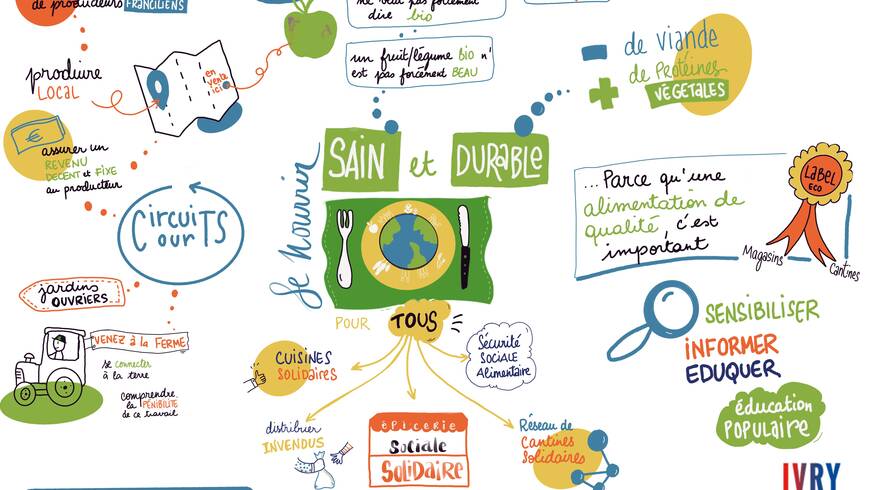 de producteurs FRANCILIENS
produire
LOCAL
en
vente
ici
assurer un
REVENU
DECENT et FIXE
au producteur
CircuiTS
CourTS
jardins
OUVRIERS
VENEZ à la FERME
se connecter
à la terre
comprendre
la PÉNIBILITÉ
de ce travail
ne veut pas forcément
dire bio
un fruit/légume BIO n'
est pas forcément BEAU
Se Nourrir
SAIN et DURABLE
POUR TOUS
CUISINES
SOLIDAIRES
distribuer
INVENDUS
ÉPICERIE
Sociale
SOLIDAIRE
Sécurité
SOCIALE
Alimentaire
Réseau de
Cantines
Solidaires
de viande
de Protéines
VÉGÉTALES
...Parce qu'une
alimentation de
qualité, c'est
important
LABEL
ECO
Magasins
Cantines
SENSIBILISER
INFORMER
EDUQUER
éducation
POPULAIRE
IVRY